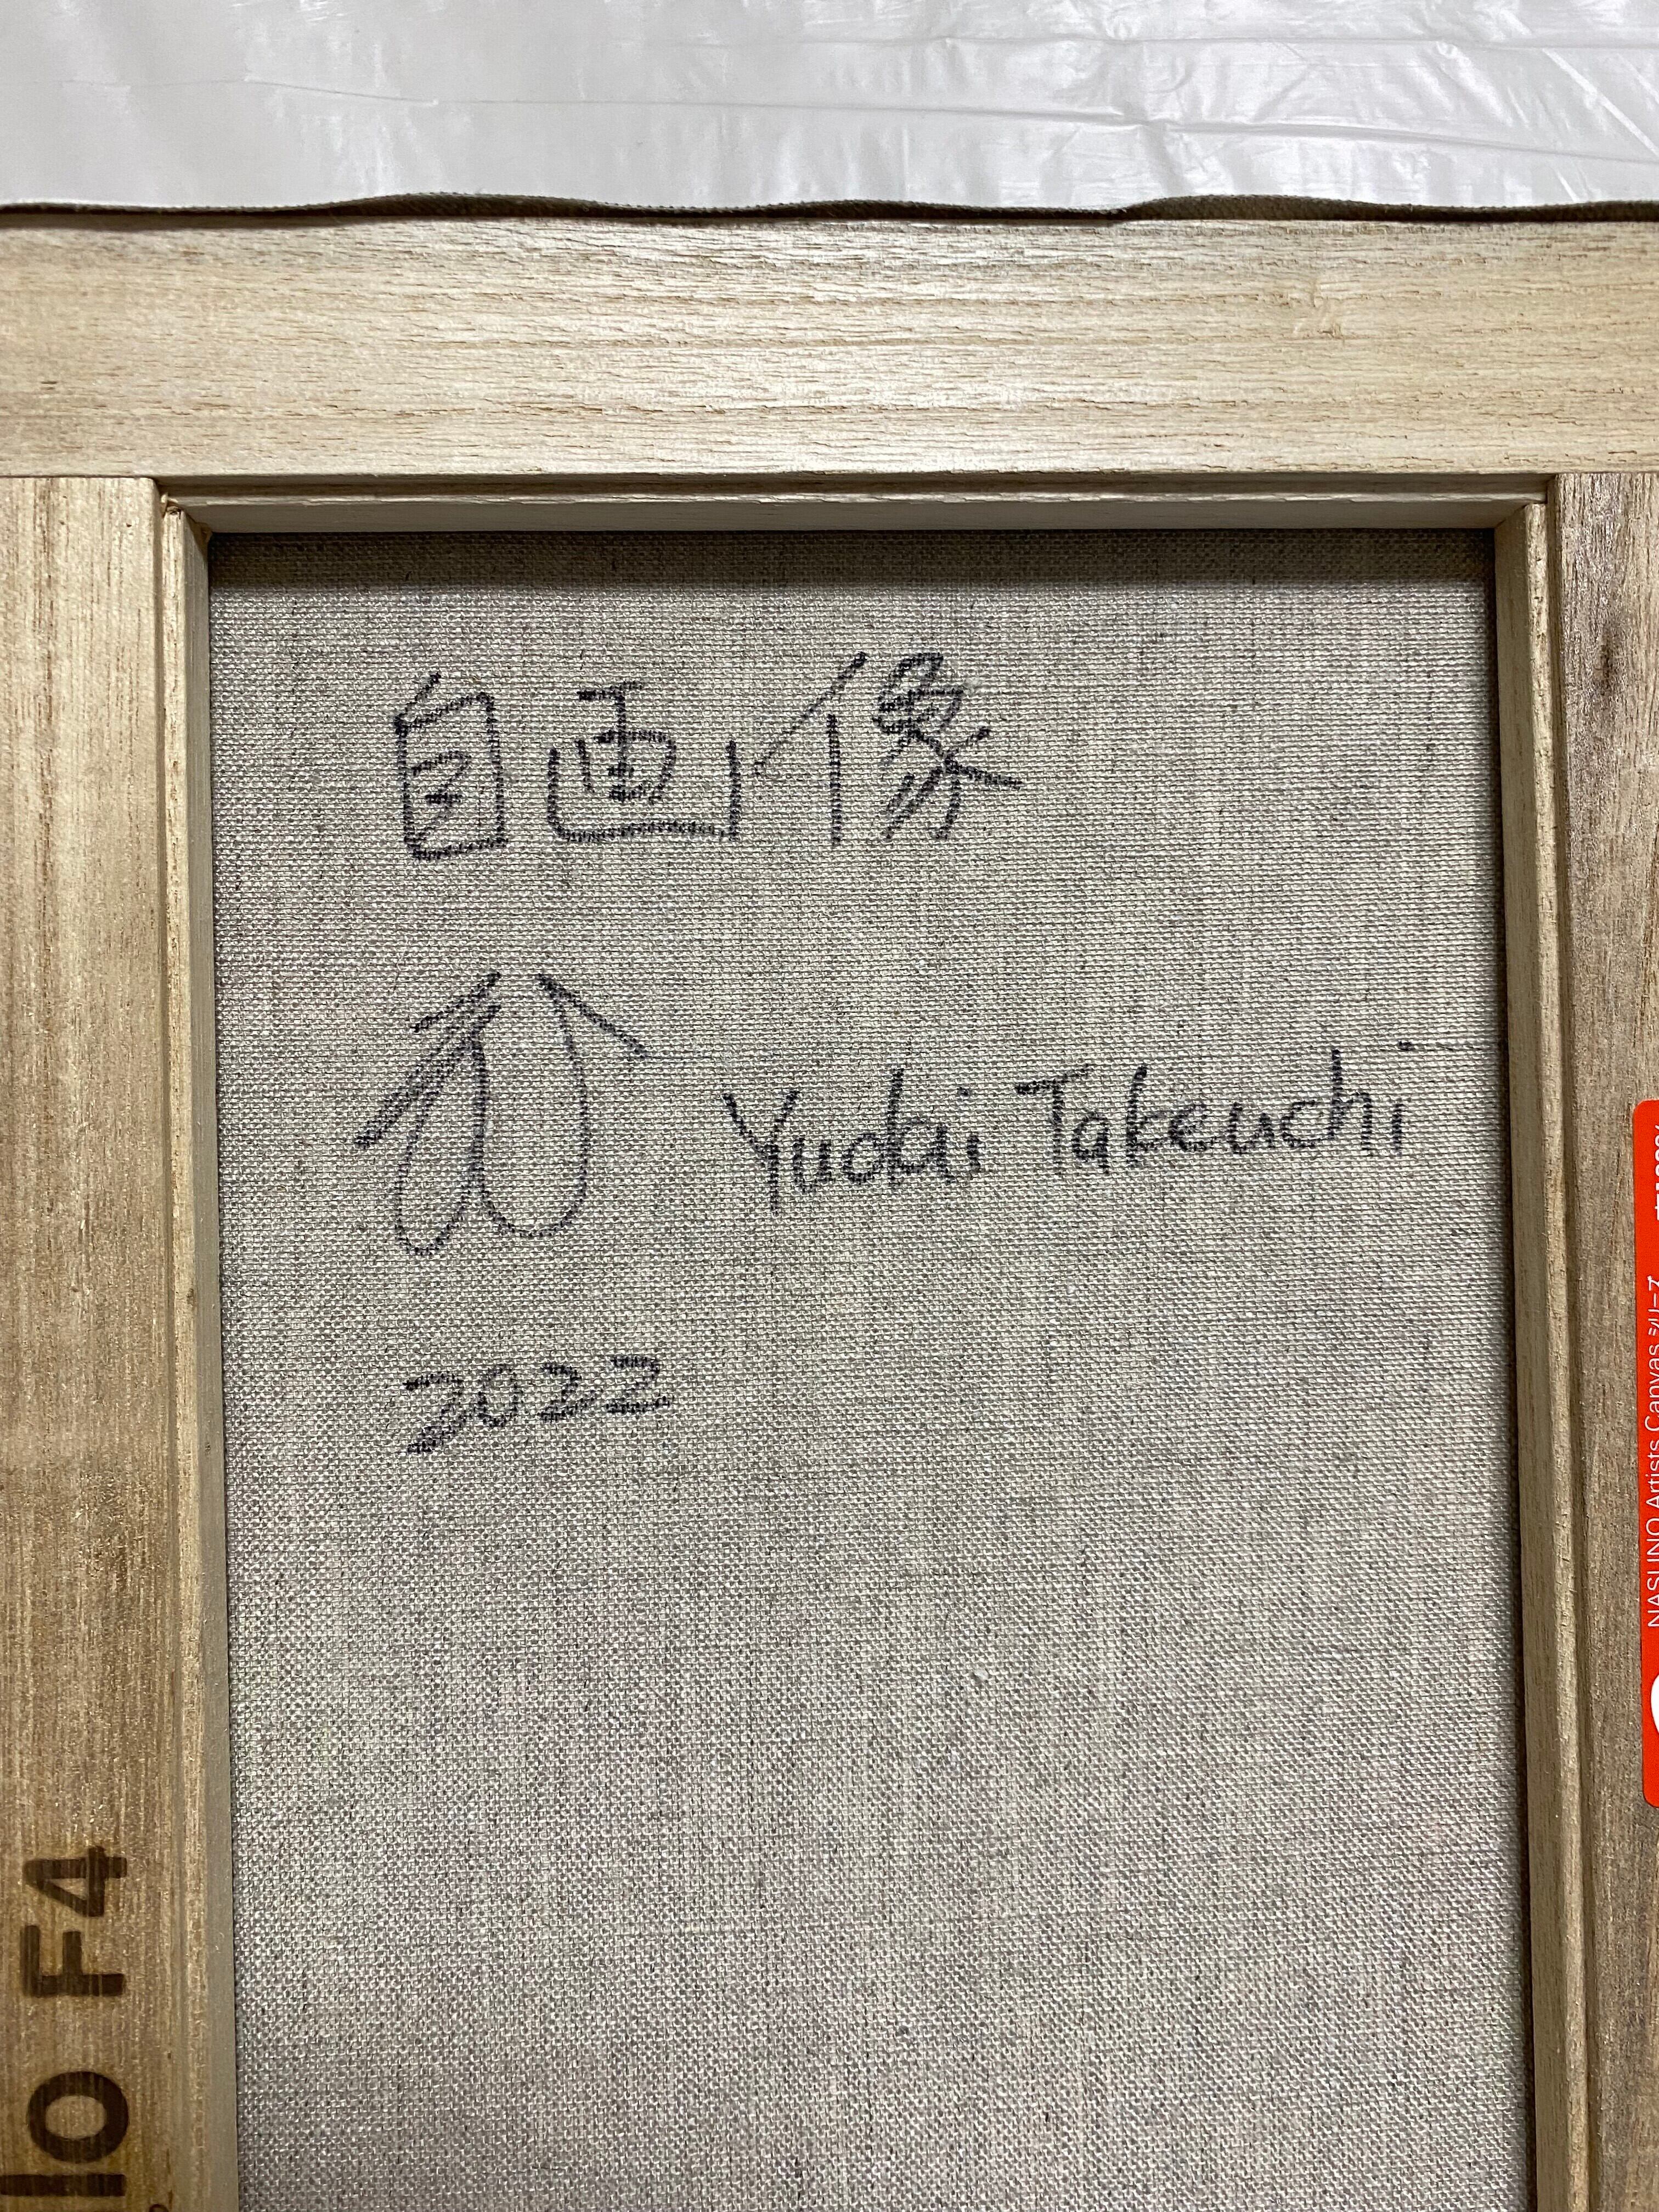 自画像
竹 Yuuki Takeuchi
2022
F4
NASUNO Artists Canvas シリーズ